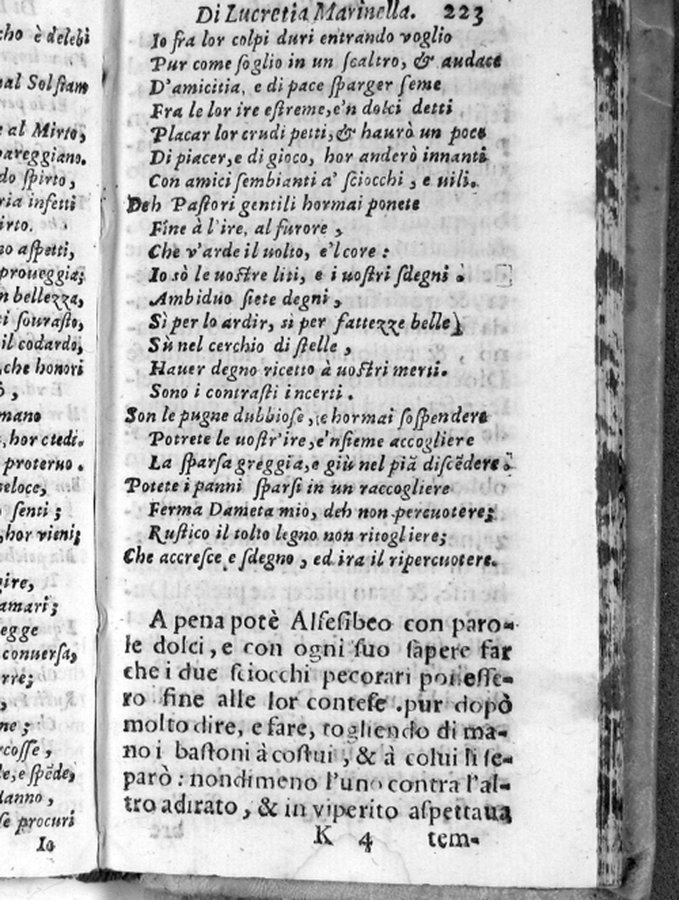 cho è delebi
nal Solstano
e al Mirto,
pareggiano.
do spirto,
ria infetti
irto.
no aspetti,
proueggia;
n bellezza,
ti sourasto,
il codardo,
, che honori
ò,
mano
, hor ctedi.
proteruo.
veloce,
senti;
, hor vieni;
gire,
amari;
egge
conuersa,
rre;
,
ne;
rcosse,
le, e spẽde,
danno,
se procuri
Io
Di Lucretia Marinella. 223
Io fra lor colpi duri entrando voglio
Pur come soglio in un scaltro, & audace
D'amicitia, e di pace sparger seme
Fra le lor ire estreme, e'n dolci detti
Placar lor crudi petti, & haurò un poco
Di piacer, e di gioco, hor anderò innanti
Con amici sembianti a' sciocchi, e uili.
Deh Pastori gentili hormai ponete
Fine à l'ire, al furore,
Che v'arde il uolto, e'l core:
Io sò le uostre liti, e i uostri sdegni.
Ambiduo siete degni,
Sì per lo ardir, sì per fattezze belle)
Sù nel cerchio di stelle,
Hauer degno ricetto à uostri merti.
Sono i contrasti incerti.
Son le pugne dubbiose, e hormai sospendere
Potrete le uostr'ire, e'nsieme accogliere
La sparsa greggia, e giù nel piã discẽdere.
Potete i panni sparsi in un raccogliere
Ferma Dameta mio, deh non percuotere;
Rustico il tolto legno non ritogliere;
Che accresce e sdegno, ed ira il ripercuotere.
A pena potè Alfesibeo con paro-
le dolci, e con ogni suo sapere far
che i due sciocchi pecorari ponesse-
ro fine alle lor contese .pur dopò
molto dire, e fare, togliendo di ma-
no i bastoni à costui, & à colui li se-
parò: nondimeno l'uno contra l'al-
tro adirato, & in viperito aspettaua
K 4 tem-